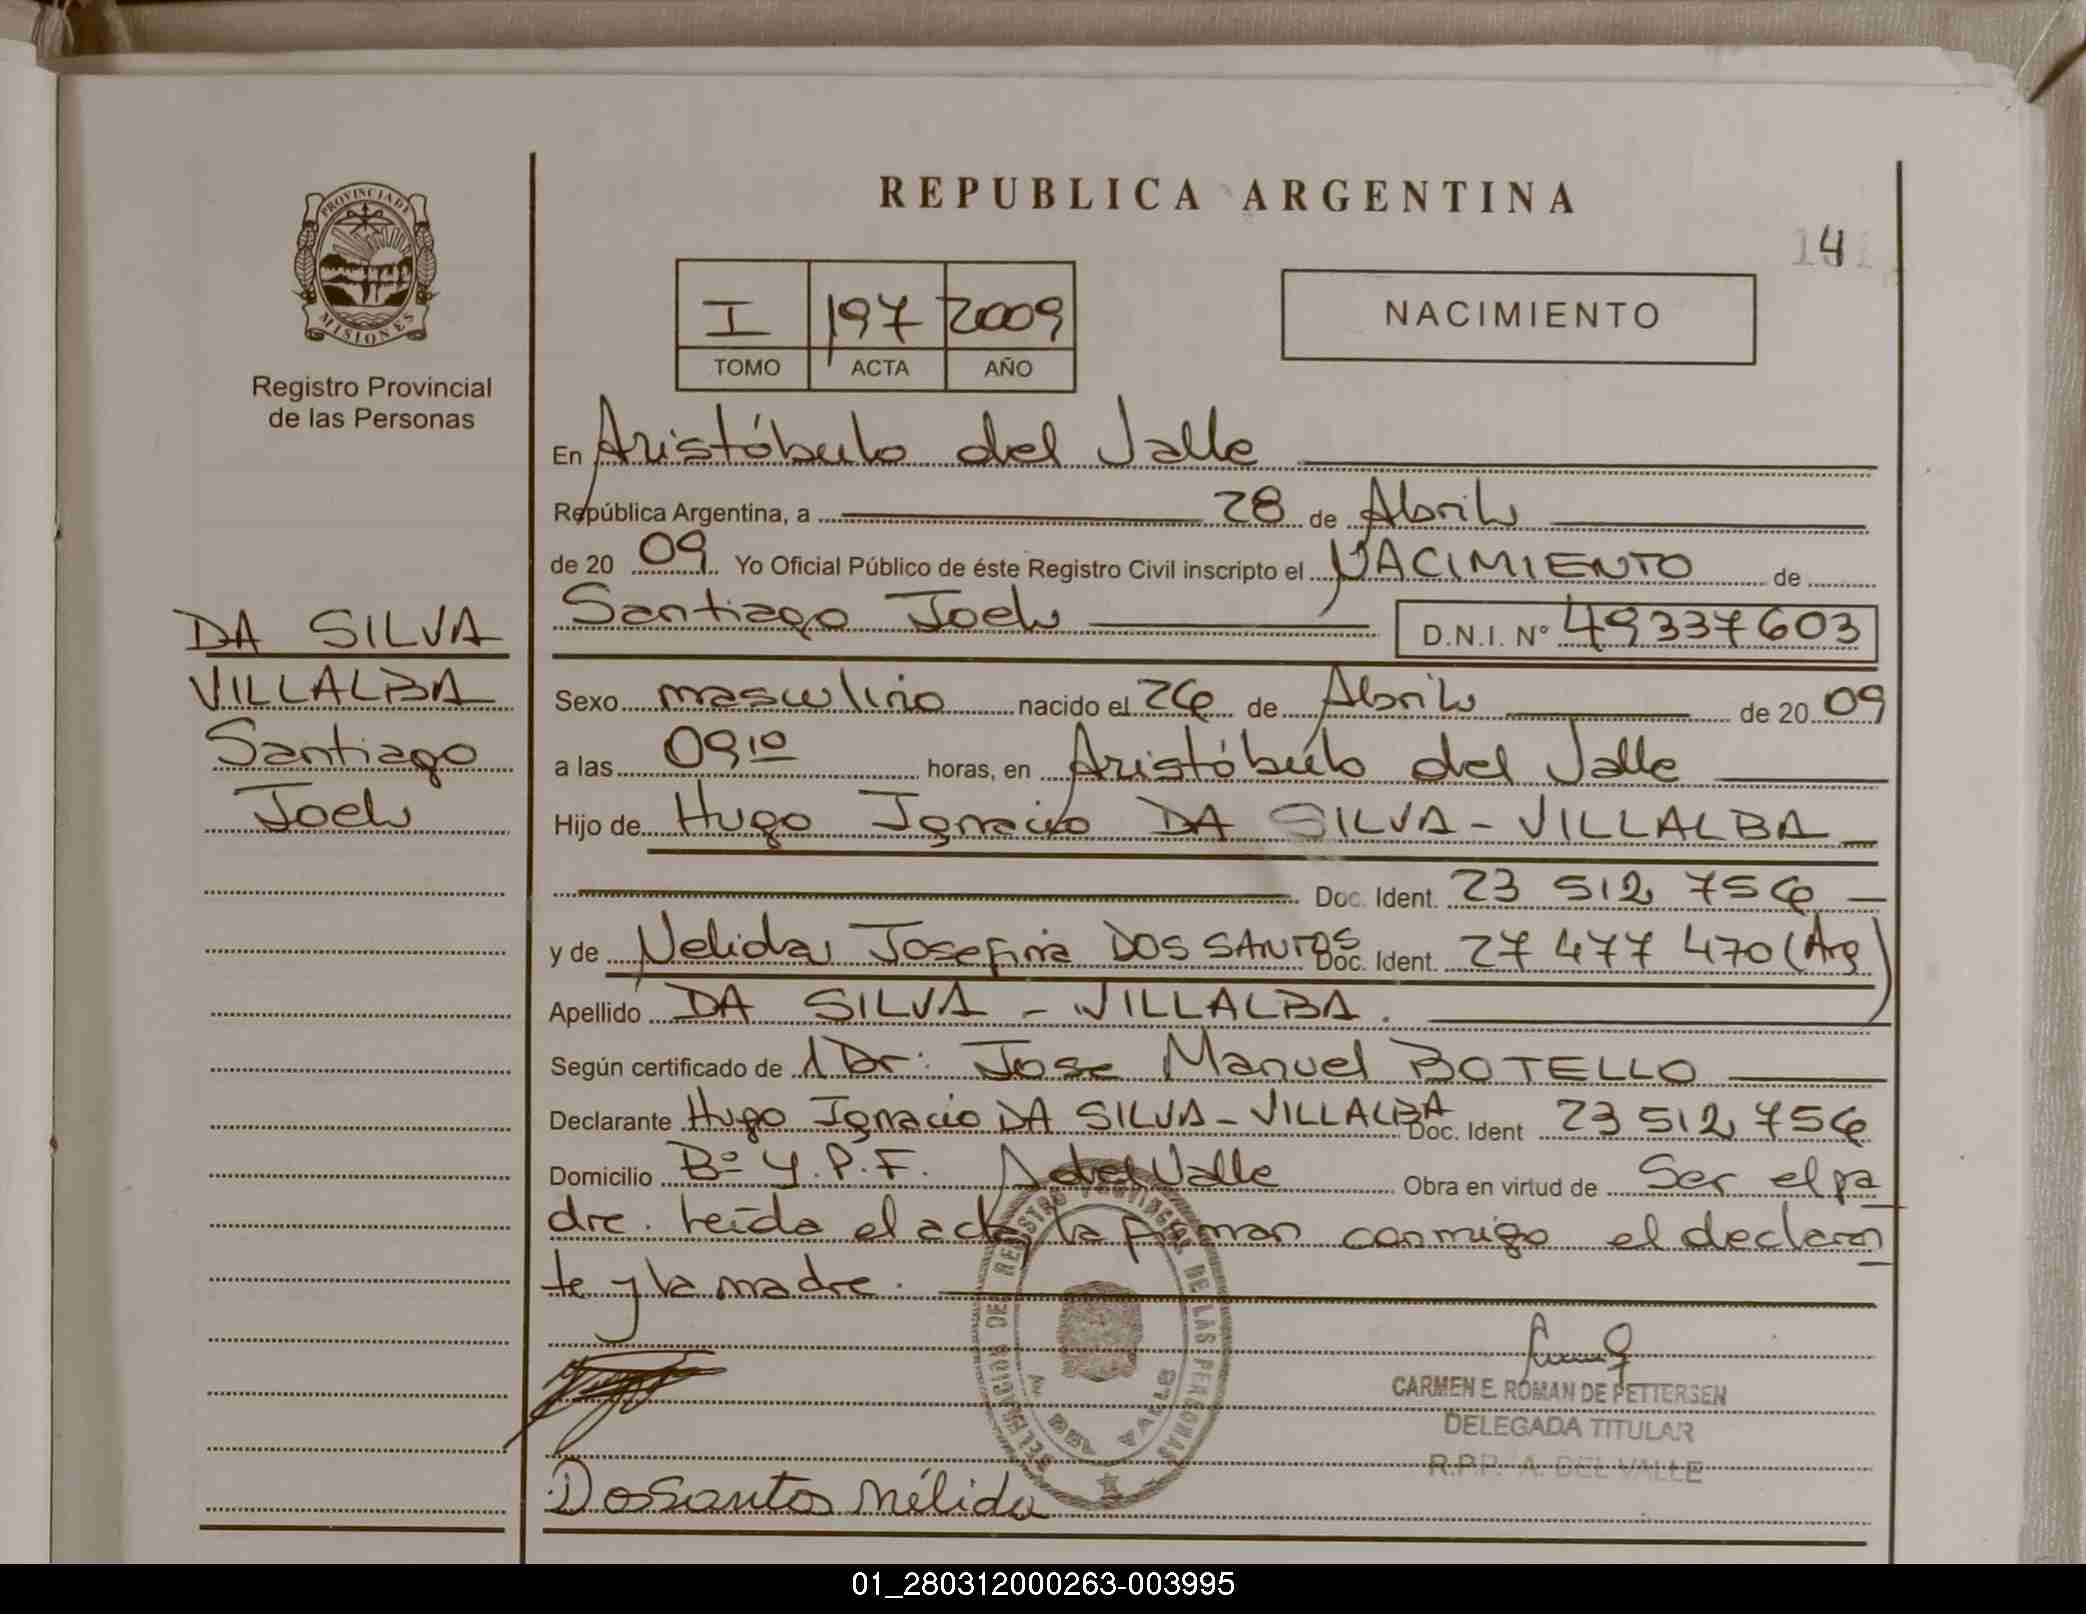 REPUBLICA ARGENTINA
14
PROVINCIA DE MISIONES
Registro Provincial
de las Personas
I 197 2009
TOMO ACTA AÑO
NACIMIENTO
En Aristóbulo del Valle
República Argentina, a 28 de Abril
de 20 09 Yo Oficial Público de éste Registro Civil inscripto el NACIMIENTO de
Santiago Joel D.N.I. Nº 49337603
DA SILVA
VILLALBA
Santiago
Joel
Sexo masculino nacido el 26 de Abril de 20 09
a las 09 10 horas, en Aristóbulo del Valle
Hijo de Hugo Ignacio DA SILVA - VILLALBA
Doc. Ident. 23 512 756
y de Nelida Josefina DOS SANTOS Doc. Ident. 27 477 470 (Arg)
Apellido DA SILVA - VILLALBA.
Según certificado de l Dr: Jose Manuel BOTELLO
Declarante Hugo Ignacio DA SILVA - VILLALBA Doc. Ident 23 512 756
Domicilio Bº Y.P.F. A del Valle Obra en virtud de Ser el pa
dre. leída el acta la firman conmigo el declaran
te y la madre.
DELEGACION DEL REGISTRO PROVINCIAL DE LAS PERSONAS
DEL VALLE
CARMEN E. ROMAN DE PETTERSEN
DELEGADA TITULAR
R.P.P. A. DEL VALLE
Dossantos Nélida
01_280312000263-003995